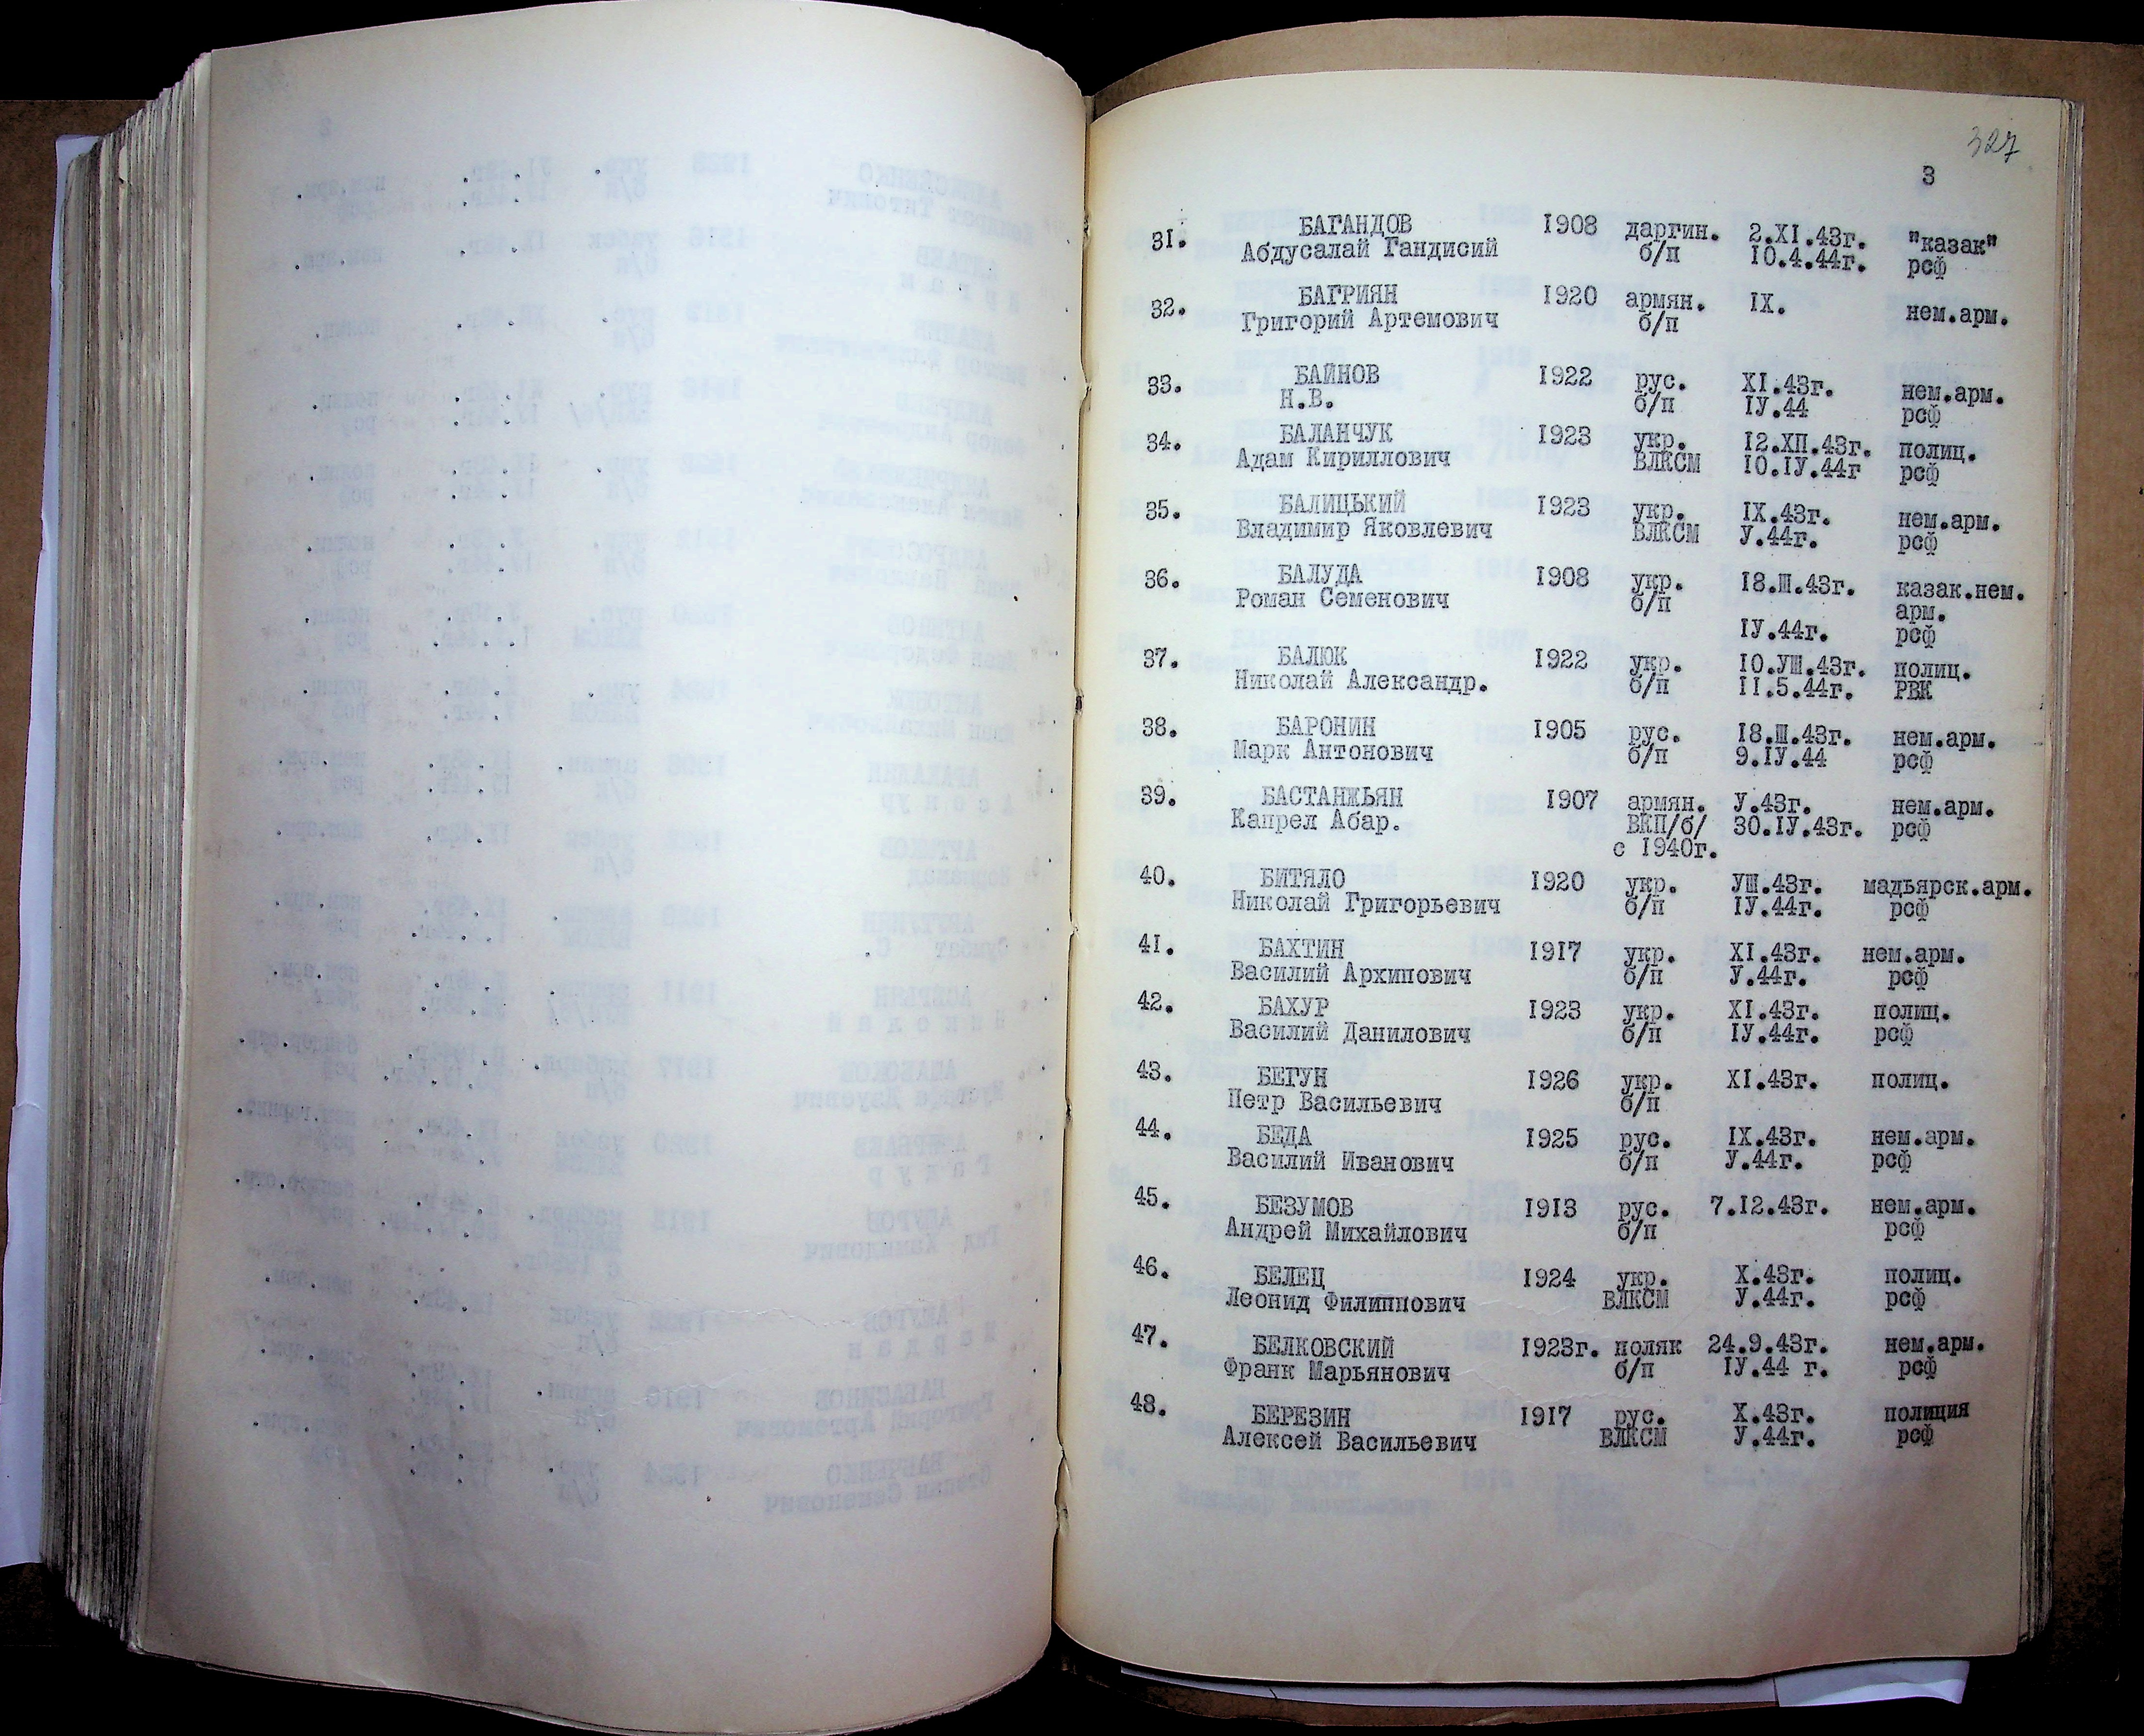 327
3
31. БАГАНДОВ 1908 даргин. 2.XI.43г. "казак"
Абдусалай Гандисий б/п 10.4.44г. рсф
32. БАГРИЯН 1920 армян. IX. нем.арм.
Григорий Артемович б/п
33. БАЙНОВ 1922 рус. XI.43г. нем.арм.
Н.В. б/п IУ.44 рсф
34. БАЛАНЧУК 1923 укр. 12.ХП.43г. полиц.
Адам Кириллович ВЛКСМ 10.IУ.44г рсф
35. БАЛИЦЬКИЙ 1923 укр. IX.43г. нем.арм.
Владимир Яковлевич ВЛКСМ У.44г. рсф
36. БАЛУДА 1908 укр. 18.Ш.43г. казак.нем.
Роман Семенович б/п арм.
IУ.44г. рсф
37. БАЛЮК 1922 укр. 10.УШ.43г. полиц.
Николай Александр. б/п 11.5.44г. РВК
38. БАРОНИН 1905 рус. 18.Ш.43г. нем.арм.
Марк Антонович б/п 9.IУ.44 рсф
39. БАСТАНЖЬЯН 1907 армян. У.43г. нем.арм.
Капрел Абар. ВКП/б/ 30.IУ.43г. рсф
с 1940г.
40. БИТЯЛО 1920 укр. УШ.43г. мадьярск.арм.
Николай Григорьевич б/п IУ.44г. рсф
41. БАХТИН 1917 укр. XI.43г. нем.арм.
Василий Архипович б/п У.44г. рсф
42. БАХУР 1923 укр. XI.43г. полиц.
Василий Данилович б/п IУ.44г. рсф
43. БЕГУН 1926 укр. XI.43г. полиц.
Петр Васильевич б/п
44. БЕДА 1925 рус. IX.43г. нем.арм.
Василий Иванович б/п У.44г. рсф
45. БЕЗУМОВ 1913 рус. 7.12.43г. нем.арм.
Андрей Михайлович б/п рсф
46. БЕЛЕЦ 1924 укр. X.43г. полиц.
Леонид Филиппович ВЛКСМ У.44г. рсф
47. БЕЛКОВСКИЙ 1923г. поляк 24.9.43г. нем.арм.
Франк Марьянович б/п IУ.44 г. рсф
48. БЕРЕЗИН 1917 рус. X.43г. полиция
Алексей Васильевич ВЛКСМ У.44г. рсф